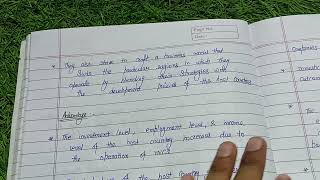 Page No.
Date:
* They also strive to craft a business model that
suits the particular regions in which they
operate by blending their strategies with
the development policies of the host countries
Advantage:-
* The investment level, employment level, & income
level of the host country increases due to
the operation of MNC's
of the host country
* Companies
* Domestic